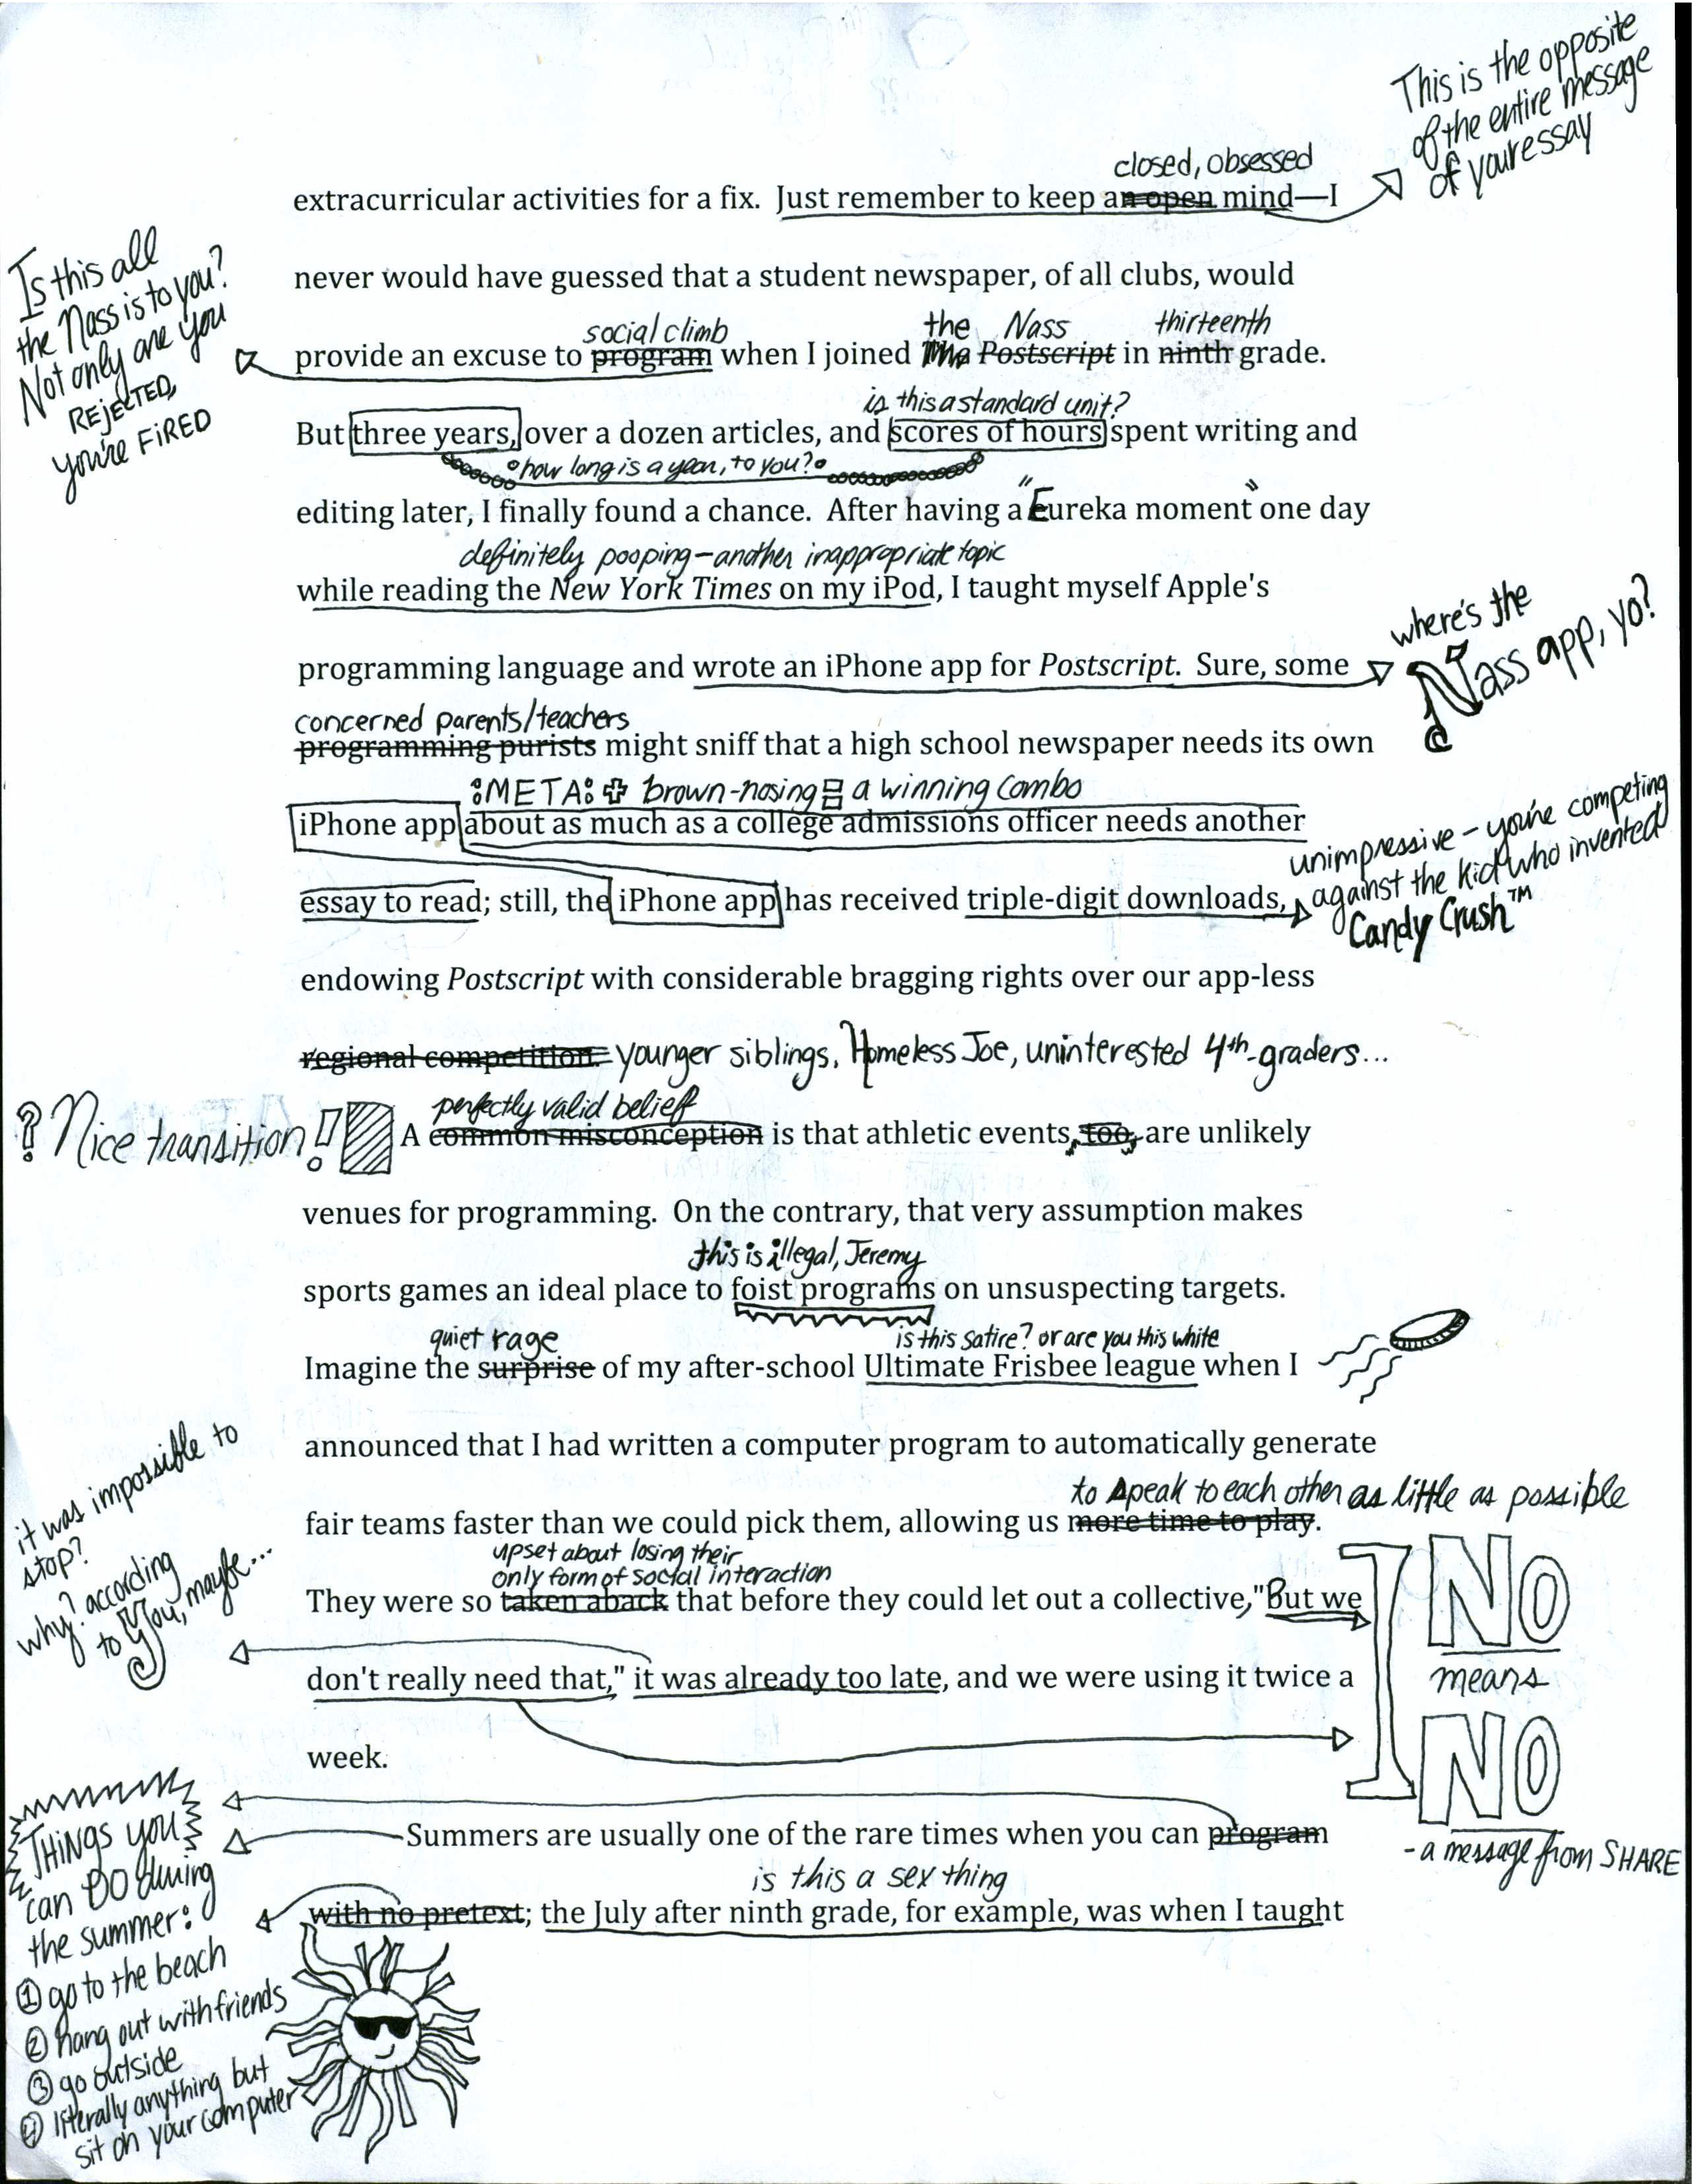 This is the opposite
of the entire message
of your essay
closed, obsessed
extracurricular activities for a fix. Just remember to keep an open mind—I
never would have guessed that a student newspaper, of all clubs, would
Is this all
the Nass is to you?
Not only are you
REJECTED,
you're FIRED
social climb the Nass thirteenth
provide an excuse to program when I joined The Postscript in ninth grade.
is this a standard unit?
But three years, over a dozen articles, and scores of hours spent writing and
how long is a year, to you?
editing later, I finally found a chance. After having a "Eureka moment" one day
definitely pooping—another inappropriate topic
while reading the New York Times on my iPod, I taught myself Apple's
programming language and wrote an iPhone app for Postscript. Sure, some
where's the
Nass app, yo?
concerned parents/teachers
programming purists might sniff that a high school newspaper needs its own
:META: + brown-nosing = a winning combo
iPhone app about as much as a college admissions officer needs another
essay to read; still, the iPhone app has received triple-digit downloads,
unimpressive – you're competing
against the kid who invented
Candy Crush™
endowing Postscript with considerable bragging rights over our app-less
regional competition. younger siblings, Homeless Joe, uninterested 4th-graders...
? Nice transition!
perfectly valid belief
A common misconception is that athletic events, too, are unlikely
venues for programming. On the contrary, that very assumption makes
this is illegal, Jeremy
sports games an ideal place to foist programs on unsuspecting targets.
quiet rage is this satire? or are you this white
Imagine the surprise of my after-school Ultimate Frisbee league when I
announced that I had written a computer program to automatically generate
to speak to each other as little as possible
fair teams faster than we could pick them, allowing us more time to play.
upset about losing their
only form of social interaction
They were so taken aback that before they could let out a collective, "But we
don't really need that," it was already too late, and we were using it twice a
week.
it was impossible to
stop?
why? according
to you, maybe...
NO
means
NO
- a message from SHARE
Summers are usually one of the rare times when you can program
is this a sex thing
with no pretext; the July after ninth grade, for example, was when I taught
THINGS you
can DO during
the summer:
① go to the beach
② hang out with friends
③ go outside
④ literally anything but
sit on your computer